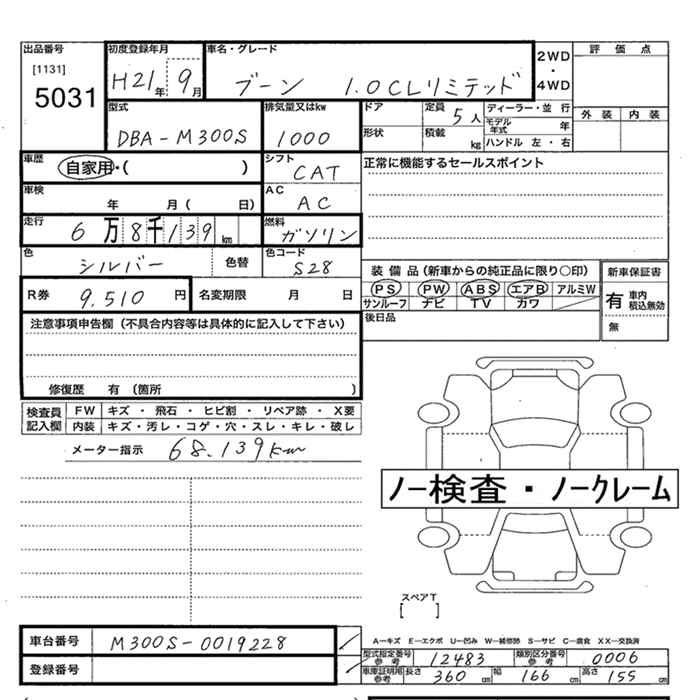 出品番号
[1131]
5031
初度登録年月
H21年 9月
車名・グレード
ブーン 1.0CLリミテッド
2WD
・
4WD
評 価 点
外 装 内 装
型式
DBA-M300S
排気量又はkw
1000
ドア
形状
定員 5人
積載 kg
ディーラー・並 行
モデル年式 年
ハンドル 左・右
車歴
自家用・( )
シフト
CAT
正常に機能するセールスポイント
車検
年 月( 日)
AC
AC
走行
6万8千139km
燃料
ガソリン
色
シルバー
色替
色コード
S28
装 備 品(新車からの純正品に限り○印)
PS PW ABS エアB アルミW
サンルーフ ナビ TV カワ
新車保証書
有 車内積込無効
無
R券
9.510円
名変期限 月 日
後日品
注意事項申告欄(不具合内容等は具体的に記入して下さい)
修復歴 有(箇所 )
検査員記入欄
FW キズ・飛石・ヒビ割・リペア跡・X要
内装 キズ・汚レ・コゲ・穴・スレ・キレ・破レ
メーター指示 68.139km
ノー検査・ノークレーム
スペアT
[ ]
A－キズ E－エクボ U－凹み W－補修跡 S－サビ C－腐食 XX－交換済
車台番号 M300S-0019228
登録番号
型式指定番号参考 12483
類別区分番号参考 0006
車庫証明用参考 長さ 360cm 幅 166cm 高さ 155cm